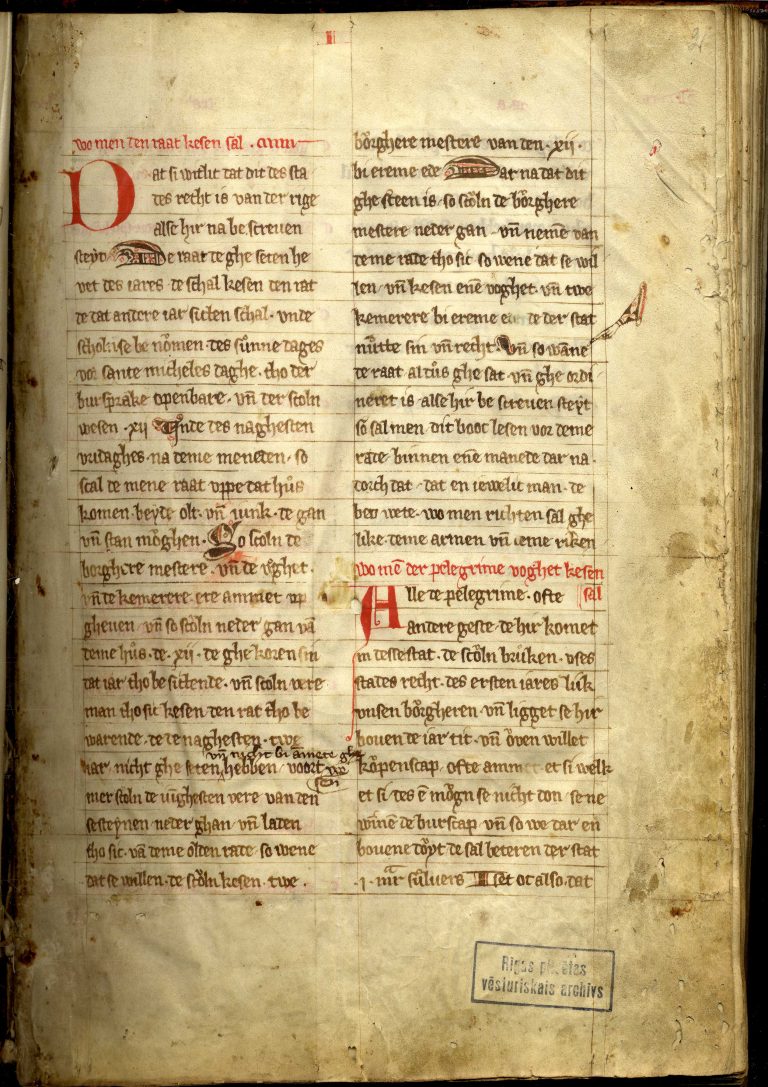 II
wo men den raat kesen sal
Dat si witlit dat dit des sta
des recht is van der rige
alse hir na be screuen
steyt De raat de ghe seten he
vet des iares de schal kesen den rat
de dat andere iar sitten schal. vnde
scholen se be nomen des sunne dages
vor sante micheles daghe tho der
bursprake openbare vn der scoln
wesen xii Vnde des naghesten
vridaghes na deme meneden so
scal de mene raat vppe dat hus
komen beyde olt vn iunk de gan
vn stan moghen So scoln de
borghere mestere vn de voghet
vnde kemerere ere ammet vp
gheuen vn so scoln neder gan van
deme hus de xii de ghe koren sin
dat iar tho be sittende vn scoln vere
man tho sic kesen den rat tho be
warende de de naghesten twe
vn nicht bi amete ghe
iar nicht ghe seten hebben voort we
sen
mer scoln de iunghesten vere van den
sesteynen neder ghan vn laden
tho sic van deme olden rade so wene
dat se willen de scoln kesen twe
borghere mestere van den xii
bi ereme ede Dar na dat dit
ghe sceen is so scoln de borghere
mestere neder gan vn nemen van
deme rade tho sic so wene dat se wil
len vn kesen ene voghet vn twe
kemerere bi ereme ede de der stat
nutte sin vn recht vn so wane
de raat aldus ghe sat vn ghe ordi
neret is alse hir be screuen steyt
so sal men dit boot lesen vor deme
rade binnen ene manede dar na
dorch dat dat en iewelit man de
bed wete wo men richten sal ghe
like deme armen vn deme riken
wo men der pelegrime voghet kesen
sal
Alle de pelegrime ofte
andere geste de hir komet
in desse stat de scoln bruken vses
stades recht des ersten iares luk
vnsen borgheren vn ligget se hir
bouen de iar tit vn oven willet
kopenscap ofte ammet et si welk
et si des en mogn se nicht don se ne
winnen de burscap vn so we dar en
bouene doyt de sal beteren der stat
i mr suluers Iset oc also dat
Rigas
vēsturiskais archivs